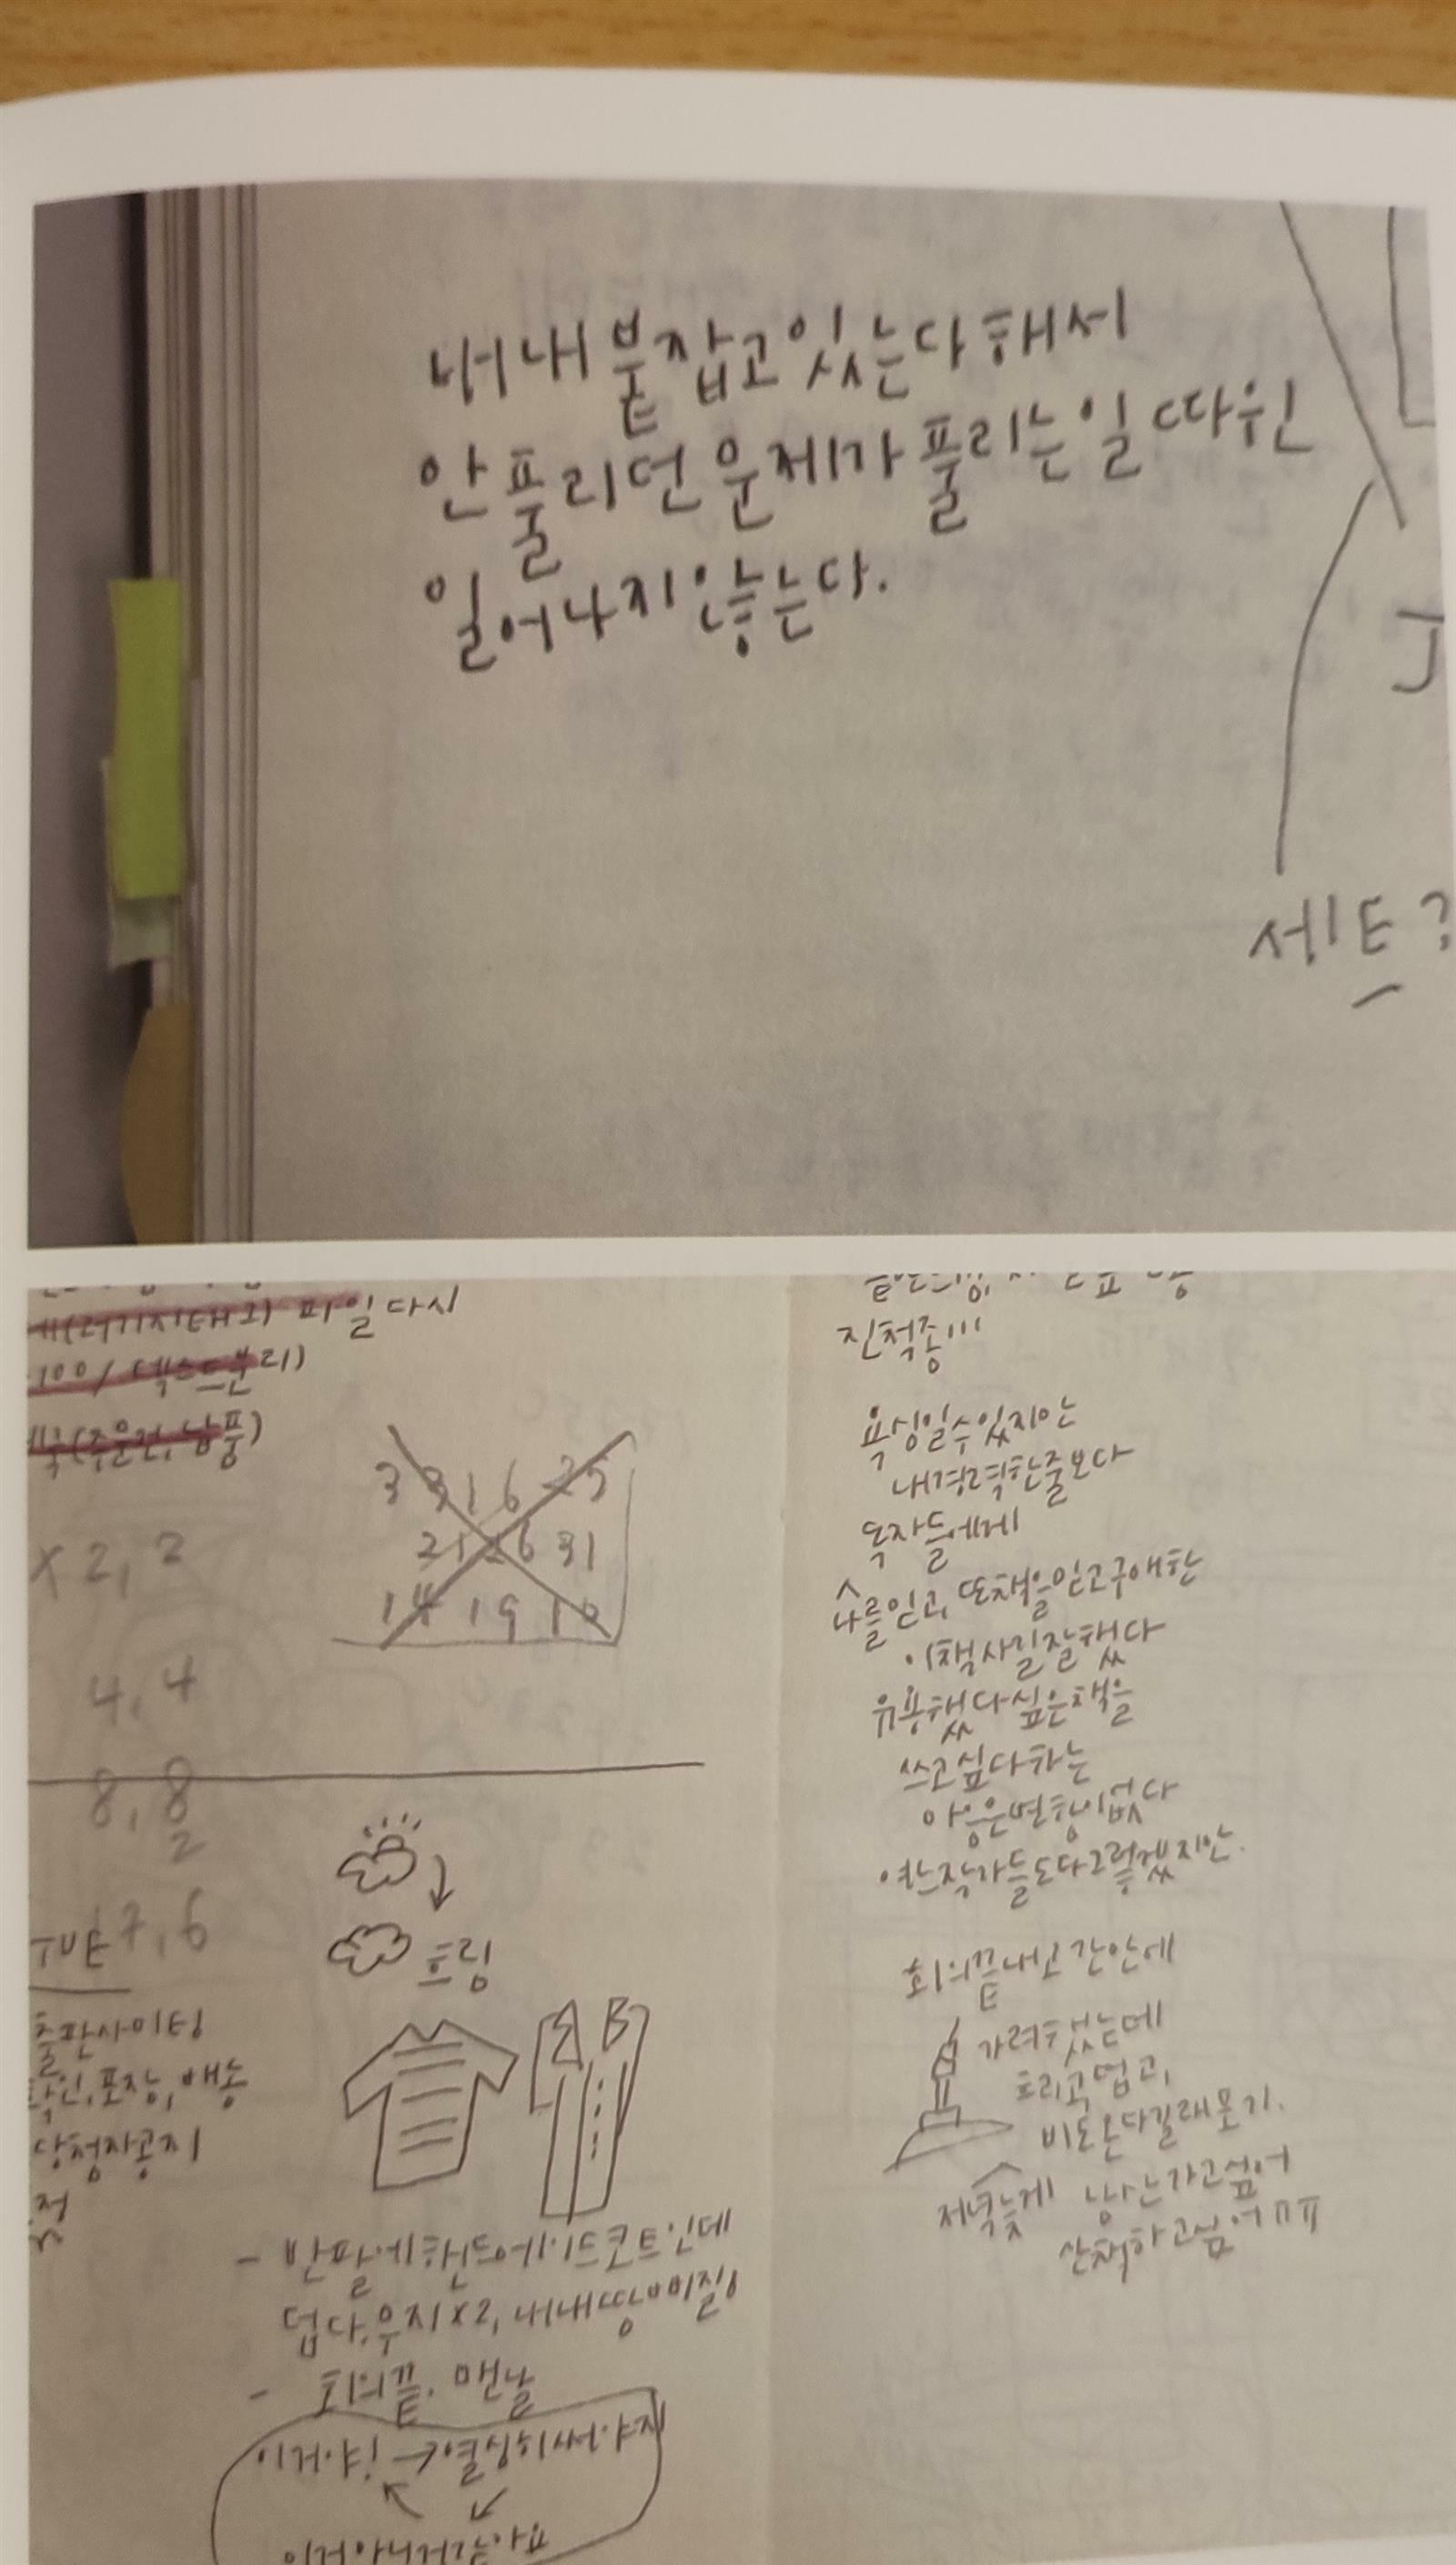 내내 붙잡고 있는다 해서
안 풀리던 문제가 풀리는 일 따윈
일어나지 않는다.
세트?
파일 다시
100/텍스트분리)
(주문건, 납품)
3 3 1 6 25
21 26 31
14 19 10
x 2, 2
4, 4
8, 8
2
7, 6
출판사미팅
확인, 포장, 배송
당첨자공지
흐림
A B
- 반팔
덥다, 우지x2, 내내땅
- 회의끝. 맨날
이거야! → 열심히써야지
이거아닌거같아요
진척중!!!
욕심일수있지만
내경력한줄보다
독자들에게
나를믿고, 또책을믿고구매한
이책사길잘했다
유용했다싶은책을
쓰고싶다하는
마음은변함이없다
여느작가들도다그렇겠지만.
회의끝내고간만에
가려했는데
흐리고덥고,
비도온다길래포기.
저녁늦게 남산가고싶어
산책하고싶어ㅠㅠ